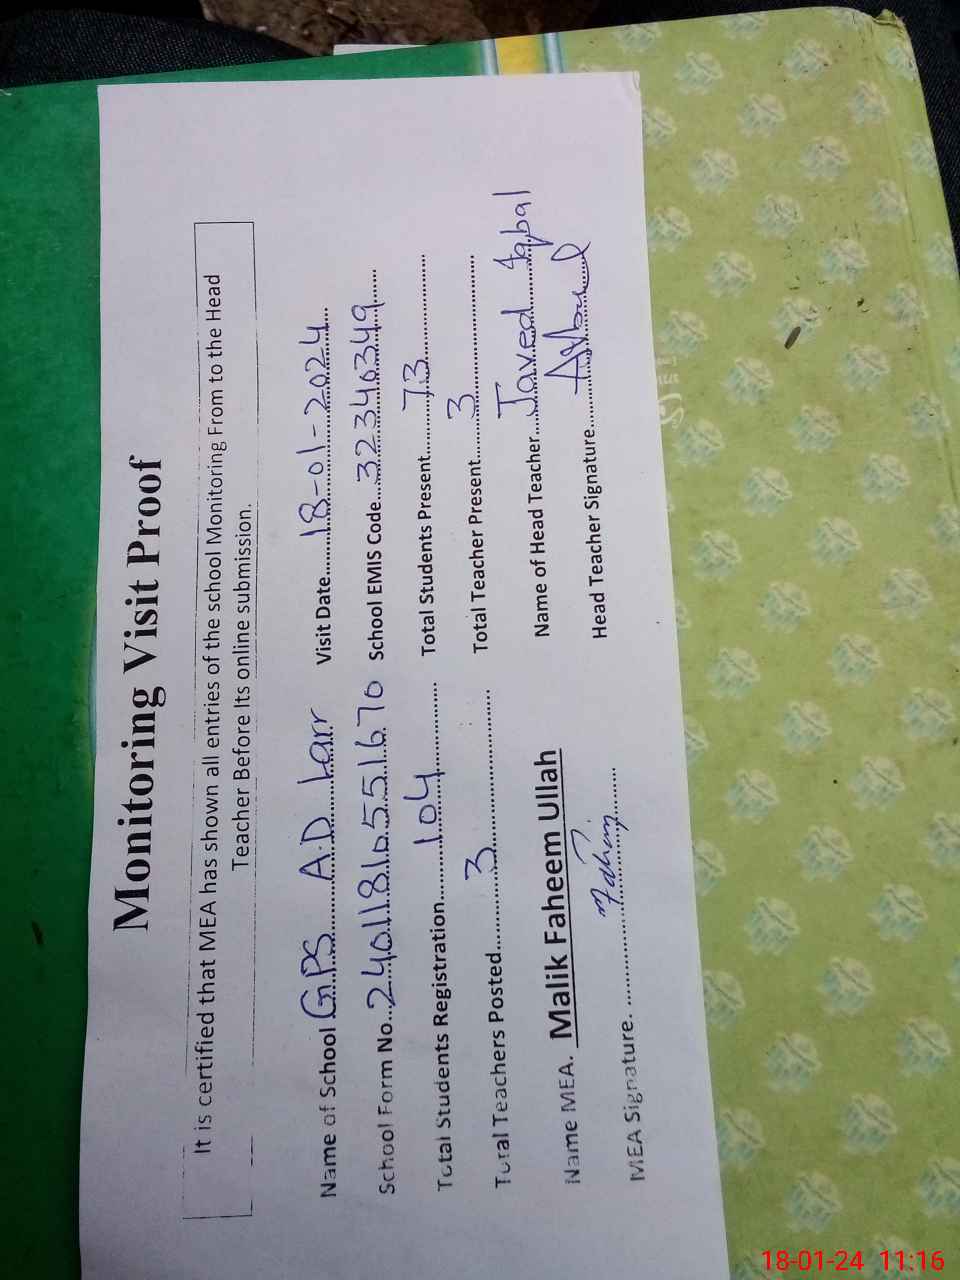 Monitoring Visit Proof
It is certified that MEA has shown all entries of the school Monitoring From to the Head
Teacher Before Its online submission.
Name of School GPS A.D Larr Visit Date 18-01-2024
School Form No. 24011816551670 School EMIS Code 32340349
Total Students Registration 104 Total Students Present 73
Total Teachers Posted 3 Total Teacher Present 3
Name MEA. Malik Faheem Ullah Name of Head Teacher Javed Iqbal
MEA Signature. Fahim Head Teacher Signature
18-01-24 11:16